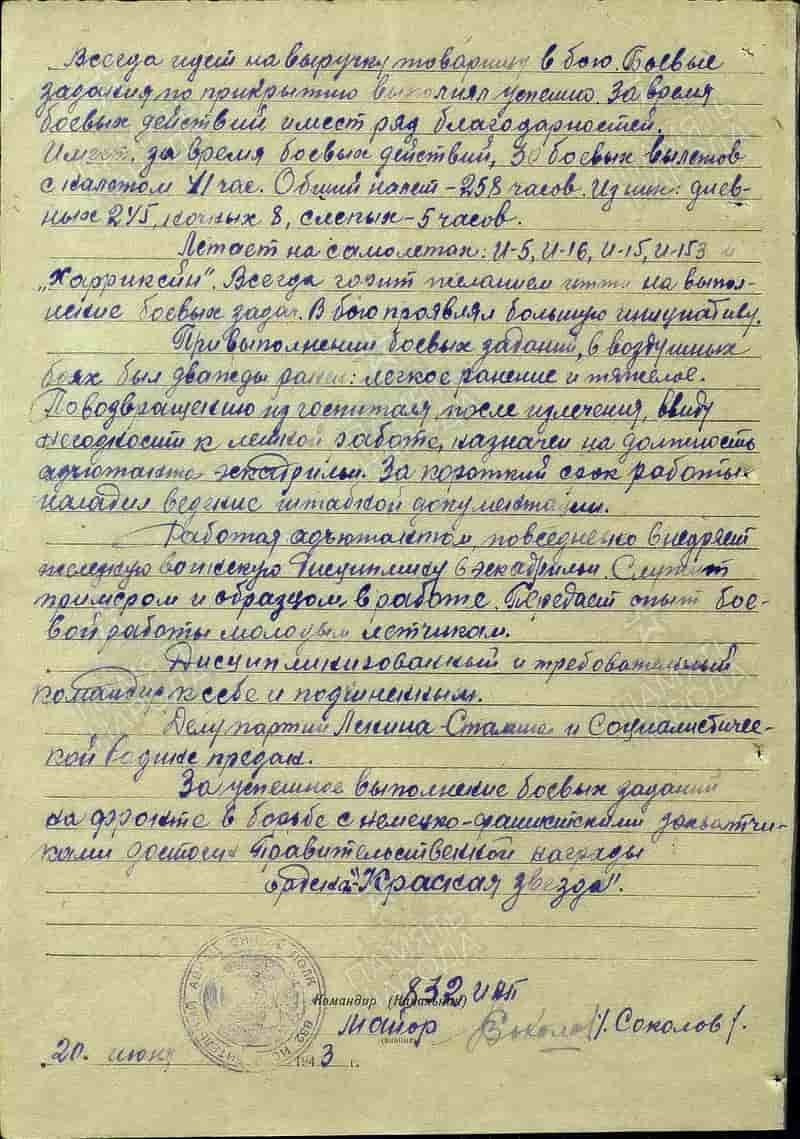 Всегда идет на выручку товарищу в бою. Боевые
задания по прикрытию выполнял успешно. За время
боевых действий имеет ряд благодарностей.
Имеет за время боевых действий, 30 боевых вылетов
с налетом 41 час. Общий налет – 258 часов. Из них: днев-
ных 245, ночных 8, слепых – 5 часов.
Летает на самолетах: И-5, И-16, И-15, И-153 и
„Харрикейн". Всегда горит желанием итти на выпол-
нение боевых задач. В бою проявлял большую инициативу.
При выполнении боевых заданий, в воздушных
боях был дважды ранен: легкое ранение и тяжелое.
По возвращению из госпиталя, после излечения, ввиду
негодности к летной работе, назначен на должность
адъютанта эскадрильи. За короткий срок работы
наладил ведение штабной документации.
Работая адъютантом повседневно внедряет
железную воинскую дисциплину в эскадрильи. Служит
примером и образцом в работе. Передает опыт бое-
вой работы молодым летчикам.
Дисциплинированный и требовательный
командир к себе и подчиненным.
Делу партии Ленина-Сталина и Социалистичес-
кой родине предан.
За успешное выполнение боевых заданий
на фронте в борьбе с немецко-фашисткими захватчи-
ками достоин Правительственной награды
ордена – "Красная звезда".
832 ИАП
Командир (Начальник)
Майор Соколов /. Соколов /.
„20. июня 1943 г.
ПАМЯТЬ
НАРОДА